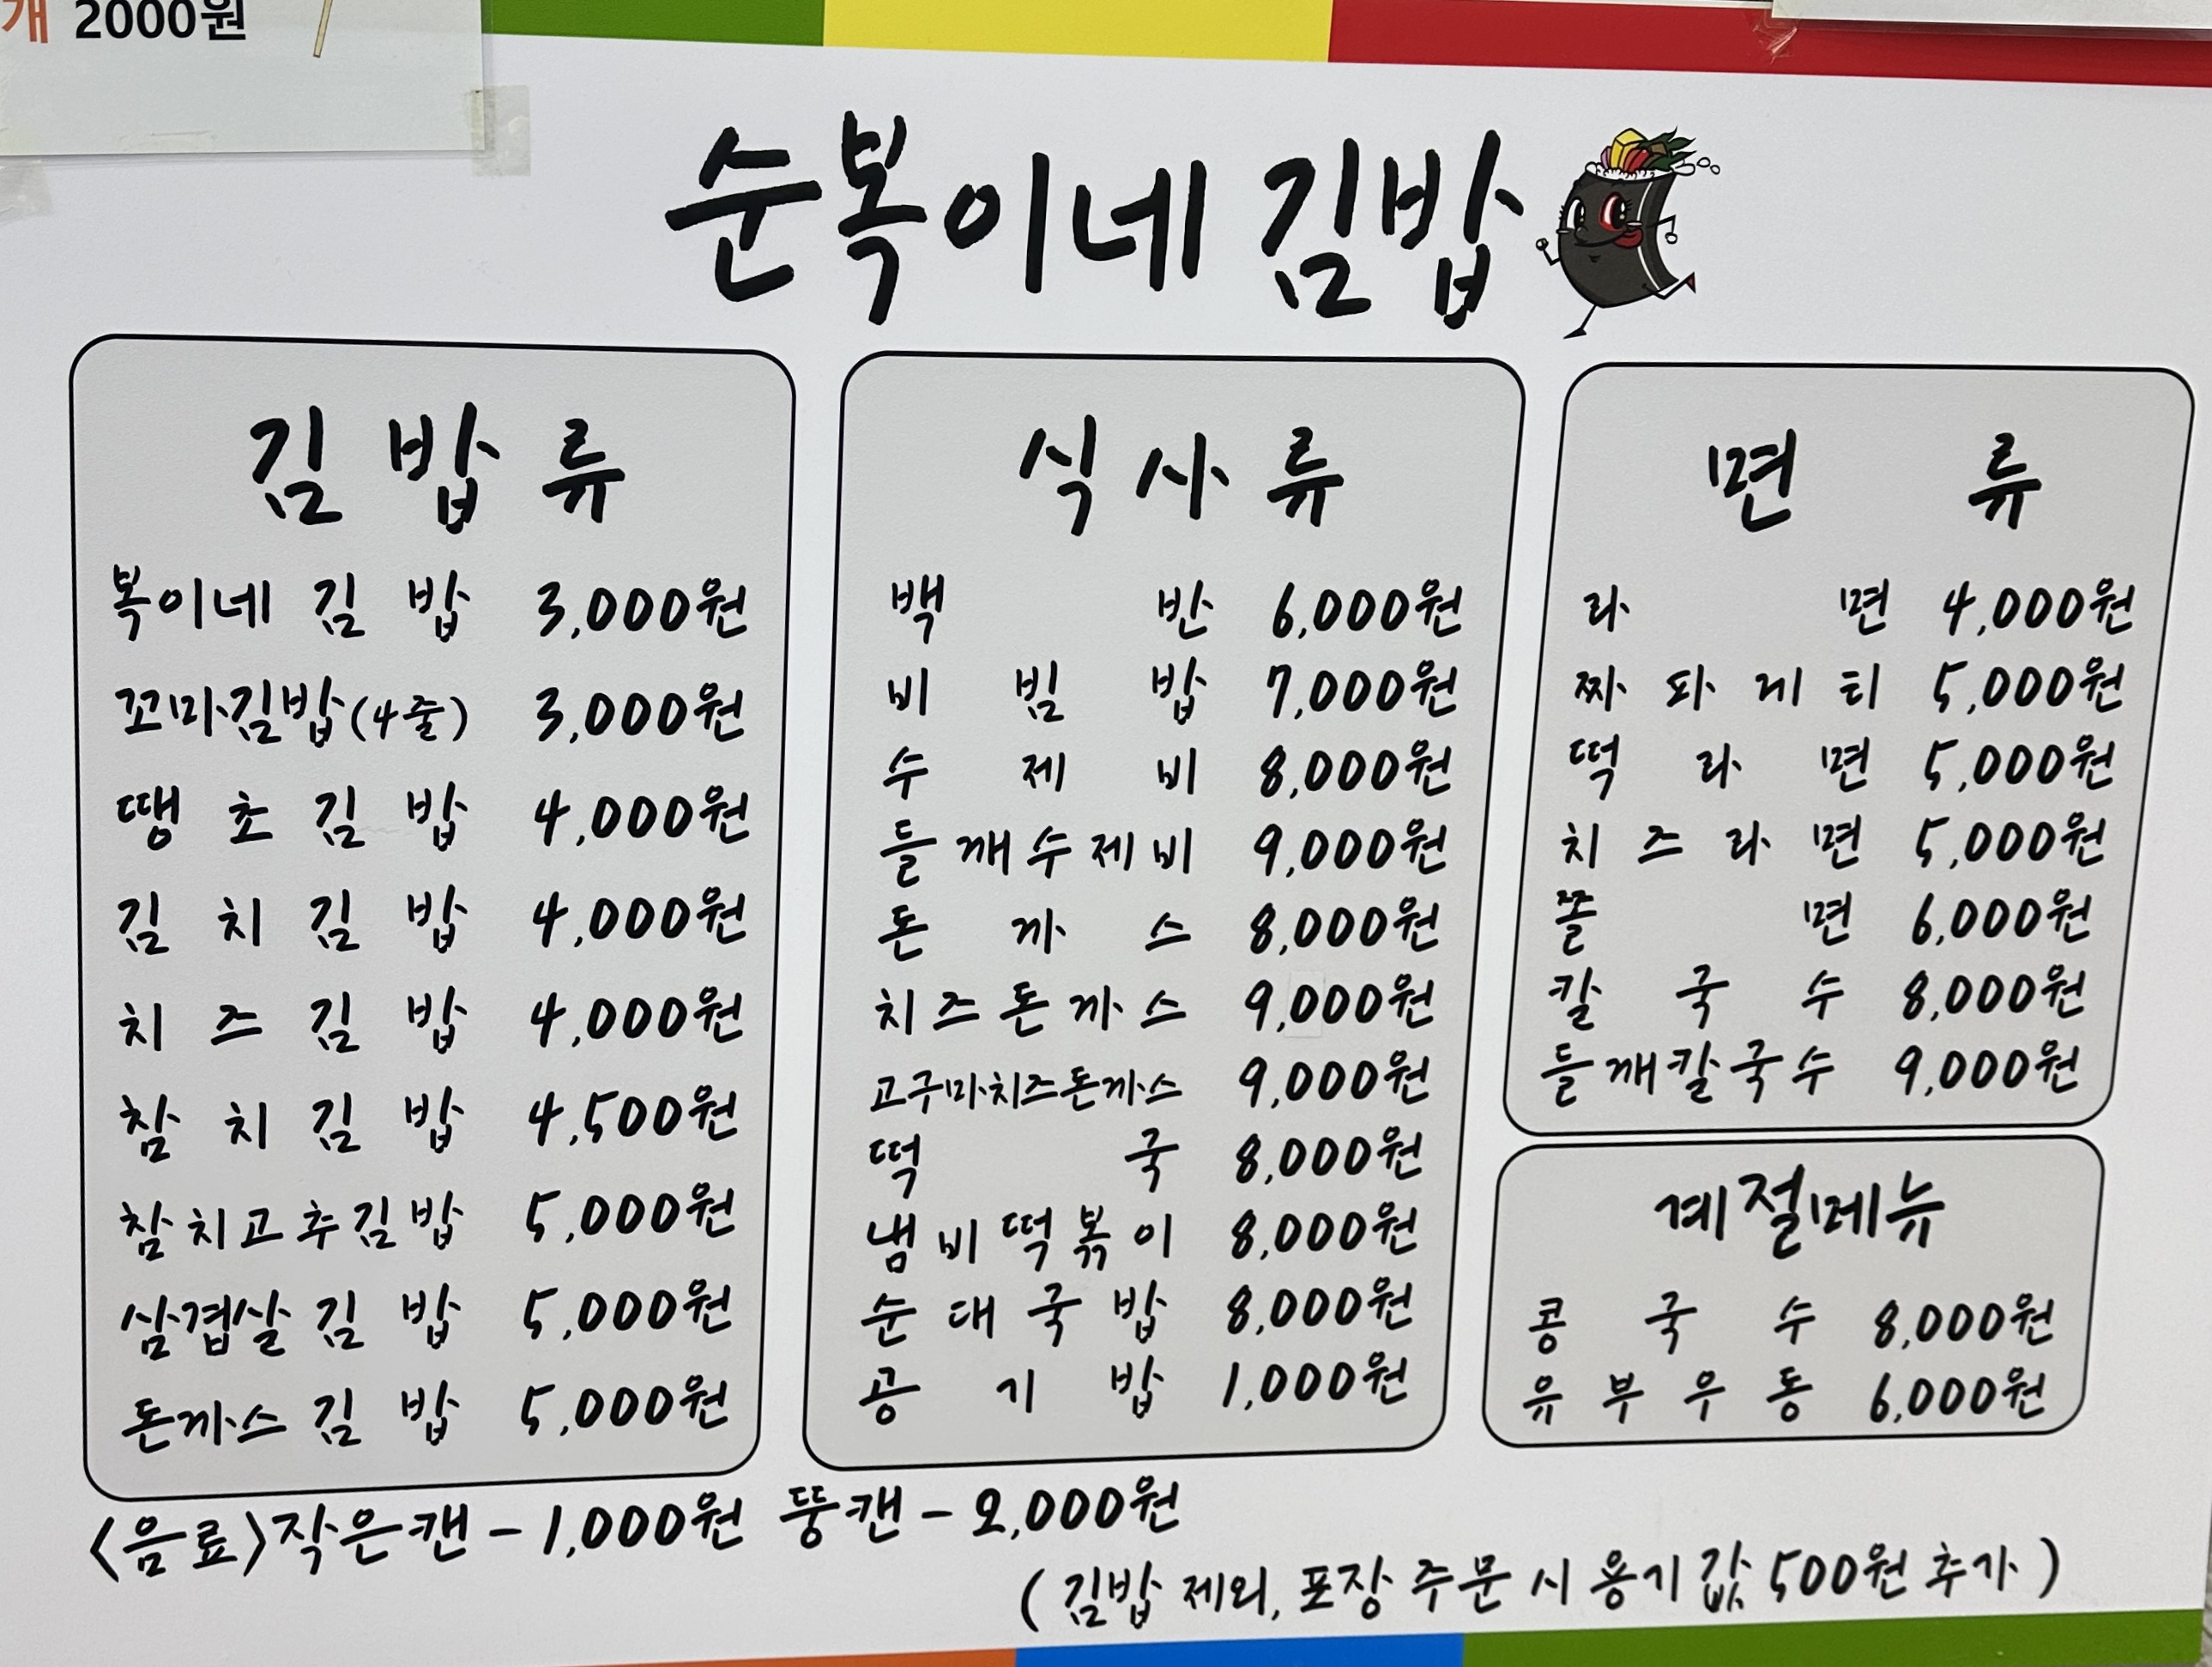 개 2000원
순복이네 김밥
김밥류
복이네김밥 3,000원
꼬마김밥(4줄) 3,000원
땡초김밥 4,000원
김치김밥 4,000원
치즈김밥 4,000원
참치김밥 4,500원
참치고추김밥 5,000원
삼겹살김밥 5,000원
돈까스김밥 5,000원
식사류
백반 6,000원
비빔밥 7,000원
수제비 8,000원
들깨수제비 9,000원
돈까스 8,000원
치즈돈까스 9,000원
고구마치즈돈까스 9,000원
떡국 8,000원
냄비떡볶이 8,000원
순대국밥 8,000원
공기밥 1,000원
면류
라면 4,000원
짜파게티 5,000원
떡라면 5,000원
치즈라면 5,000원
쫄면 6,000원
칼국수 8,000원
들깨칼국수 9,000원
계절메뉴
콩국수 8,000원
유부우동 6,000원
<음료>작은캔-1,000원 뚱캔-2,000원
(김밥 제외, 포장 주문 시 용기 값 500원 추가)